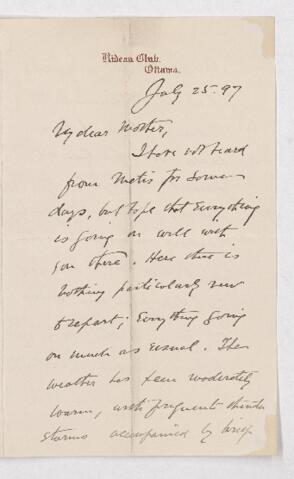 Rideau Club,
Ottawa.
July 25. 97
My dear Mother,
I have not heard
from Metis for some
days, but hope that everything
is going on well with
you there. Here there is
nothing particularly new
to report; everything going
on much as usual. The
weather has been moderately
warm, with frequent thunder
storms accompanied by